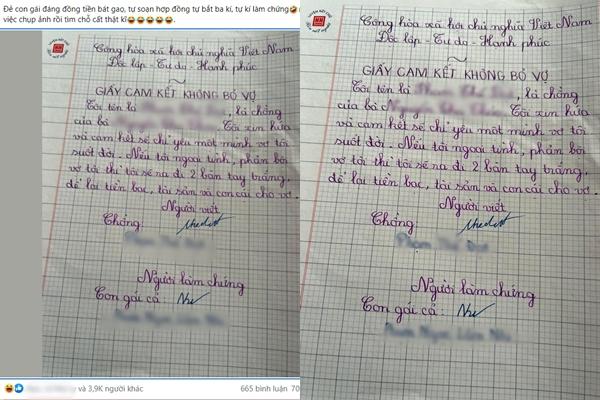 Đẻ con gái đáng đồng tiền bát gạo, tự soạn hợp đồng tự bắt ba kí, tự kí làm chứng🤣
việc chụp ảnh rồi tìm chỗ cất thật kĩ😂😂😂😂😂.
Cộng hòa xã hội chủ nghĩa Việt Nam
Độc lập - Tự do - Hạnh phúc
GIẤY CAM KẾT KHÔNG BỎ VỢ
Tôi tên là , là chồng
của bà . Tôi xin hứa
và cam kết sẽ chỉ yêu một mình vợ tôi
suốt đời. Nếu tôi ngoại tình, phản bội
vợ tôi thì tôi sẽ ra đi 2 bàn tay trắng,
để lại tiền bạc, tài sản và con cái cho vợ.
Người viết
Chồng:
Người làm chứng
Con gái cả:
và 3,9K người khác
665 bình luận 70
Cộng hòa xã hội chủ nghĩa Việt Nam
Độc lập - Tự do - Hạnh phúc
GIẤY CAM KẾT KHÔNG BỎ VỢ
Tôi tên là , là chồng
của bà . Tôi xin hứa
và cam kết sẽ chỉ yêu một mình vợ tôi
suốt đời. Nếu tôi ngoại tình, phản bội
vợ tôi thì tôi sẽ ra đi 2 bàn tay trắng,
để lại tiền bạc, tài sản và con cái cho vợ.
Người viết
Chồng:
Người làm chứng
Con gái cả: